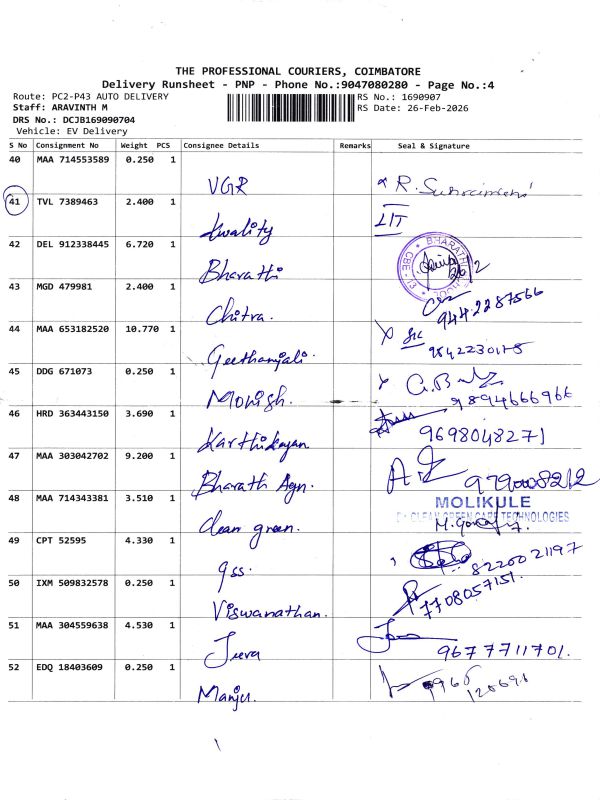 THE PROFESSIONAL COURIERS, COIMBATORE
Delivery Runsheet - PNP - Phone No.:9047080280 - Page No.:4
Route: PC2-P43 AUTO DELIVERY
RS No.: 1690907
Staff: ARAVINTH M
RS Date: 26-Feb-2026
DRS No.: DCJB169090704
Vehicle: EV Delivery
S No Consignment No Weight PCS Consignee Details Remarks Seal & Signature
40 MAA 714553589 0.250 1
VGR R.
41 TVL 7389463 2.400 1
LIT
Kwality
42 DEL 912338445 6.720 1
BHARATHI
CBE - 13
Bharathi
43 MGD 479981 2.400 1
Chitra. 9442287566
44 MAA 653182520 10.770 1
Geethanjali.
45 DDG 671073 0.250 1
Monish. 9894666966
46 HRD 363443150 3.690 1
Karthikeyan 9698048271
47 MAA 303042702 9.200 1
Bharath Agn.
48 MAA 714343381 3.510 1
MOLIKULE
CLEAN GREEN CARE TECHNOLOGIES
Clean green.
49 CPT 52595 4.330 1
gss. 8220021197
50 IXM 509832578 0.250 1
7708057151.
Viswanathan.
51 MAA 304559638 4.530 1
Jeeva 9677711701.
52 EDQ 18403609 0.250 1
Manju.